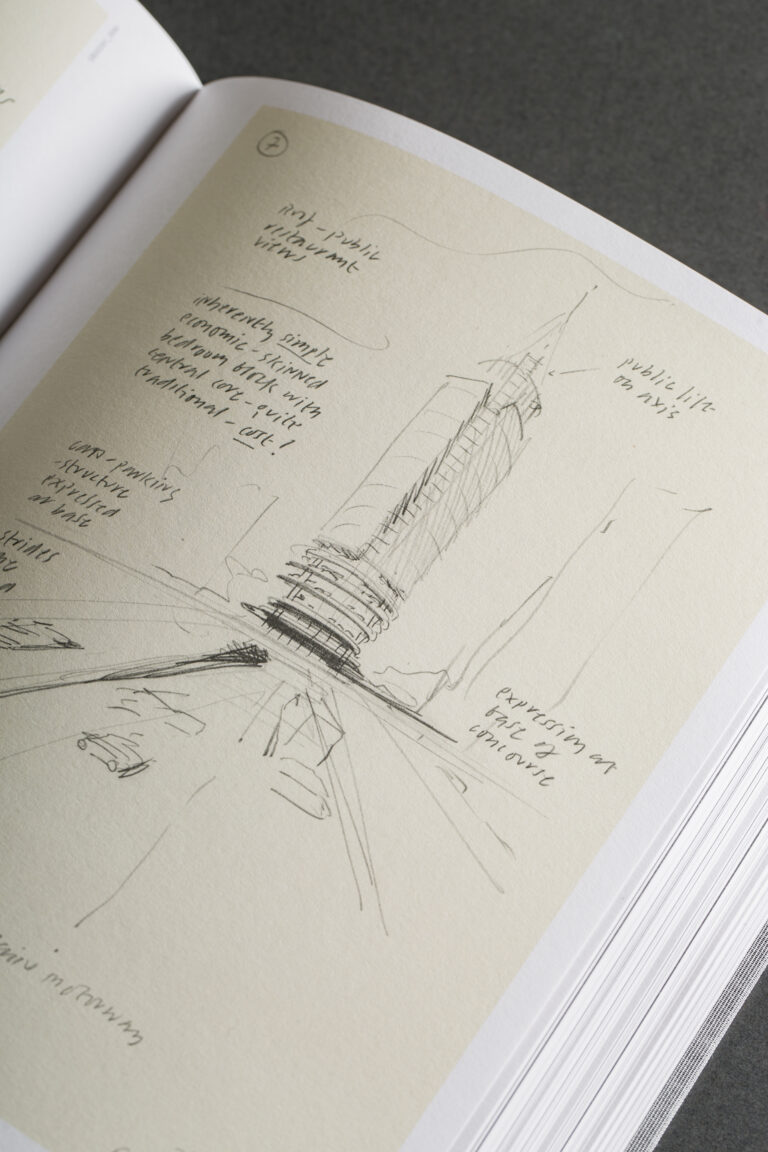 7
roof - public
restaurant
views
inherently simple
economic - skinned
bedroom block with
central core - quite
traditional - cost!
public lift
on axis
cars - parking
structure
expressed
at base
strides
expression at
base of
concourse
motorway